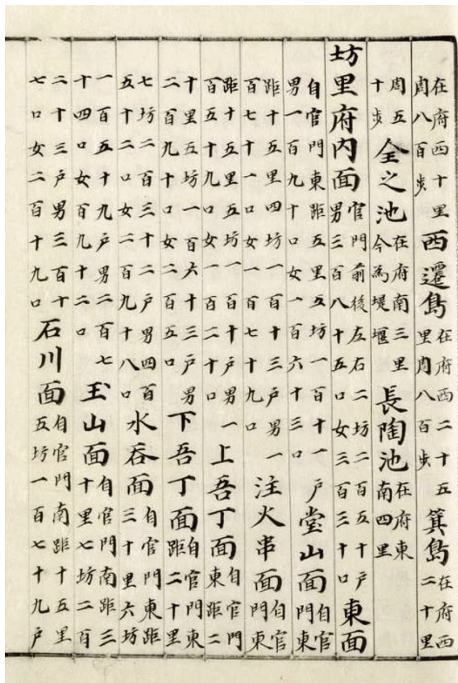 在府西四十里周八百步西遷島在府西二十五里周八百步箕島在府西二十里
周五十步全之池在府南三里今為堤堰長陶池在府東南四里
坊里府内面官門前後左右二坊二百五十戶男三百八十五口女三百三十口東面
自官門東距五里五坊一百十一戶男一百九十口女一百六十三口堂山面自官門東
距十五里四坊一百十三戶男一百七十一口女一百七十九口注火串面自官門東
距十五里五坊一百十戶男一百五十九口女一百二十四口上吾丁面自官門東距二
十里五坊一百六十三戶男二百九十口女二百五口下吾丁面自官門東距二十里
七坊二百三十二戶男四百五十二口女二百九十八口水吞面自官門東距三十里六坊
一百五十九戶男二百七十四口女百九十二口玉山面自官門南距三十里七坊二百
二十三戶男三百十七口女二百十九口石川面自官門南距十五里五坊一百七十九戶